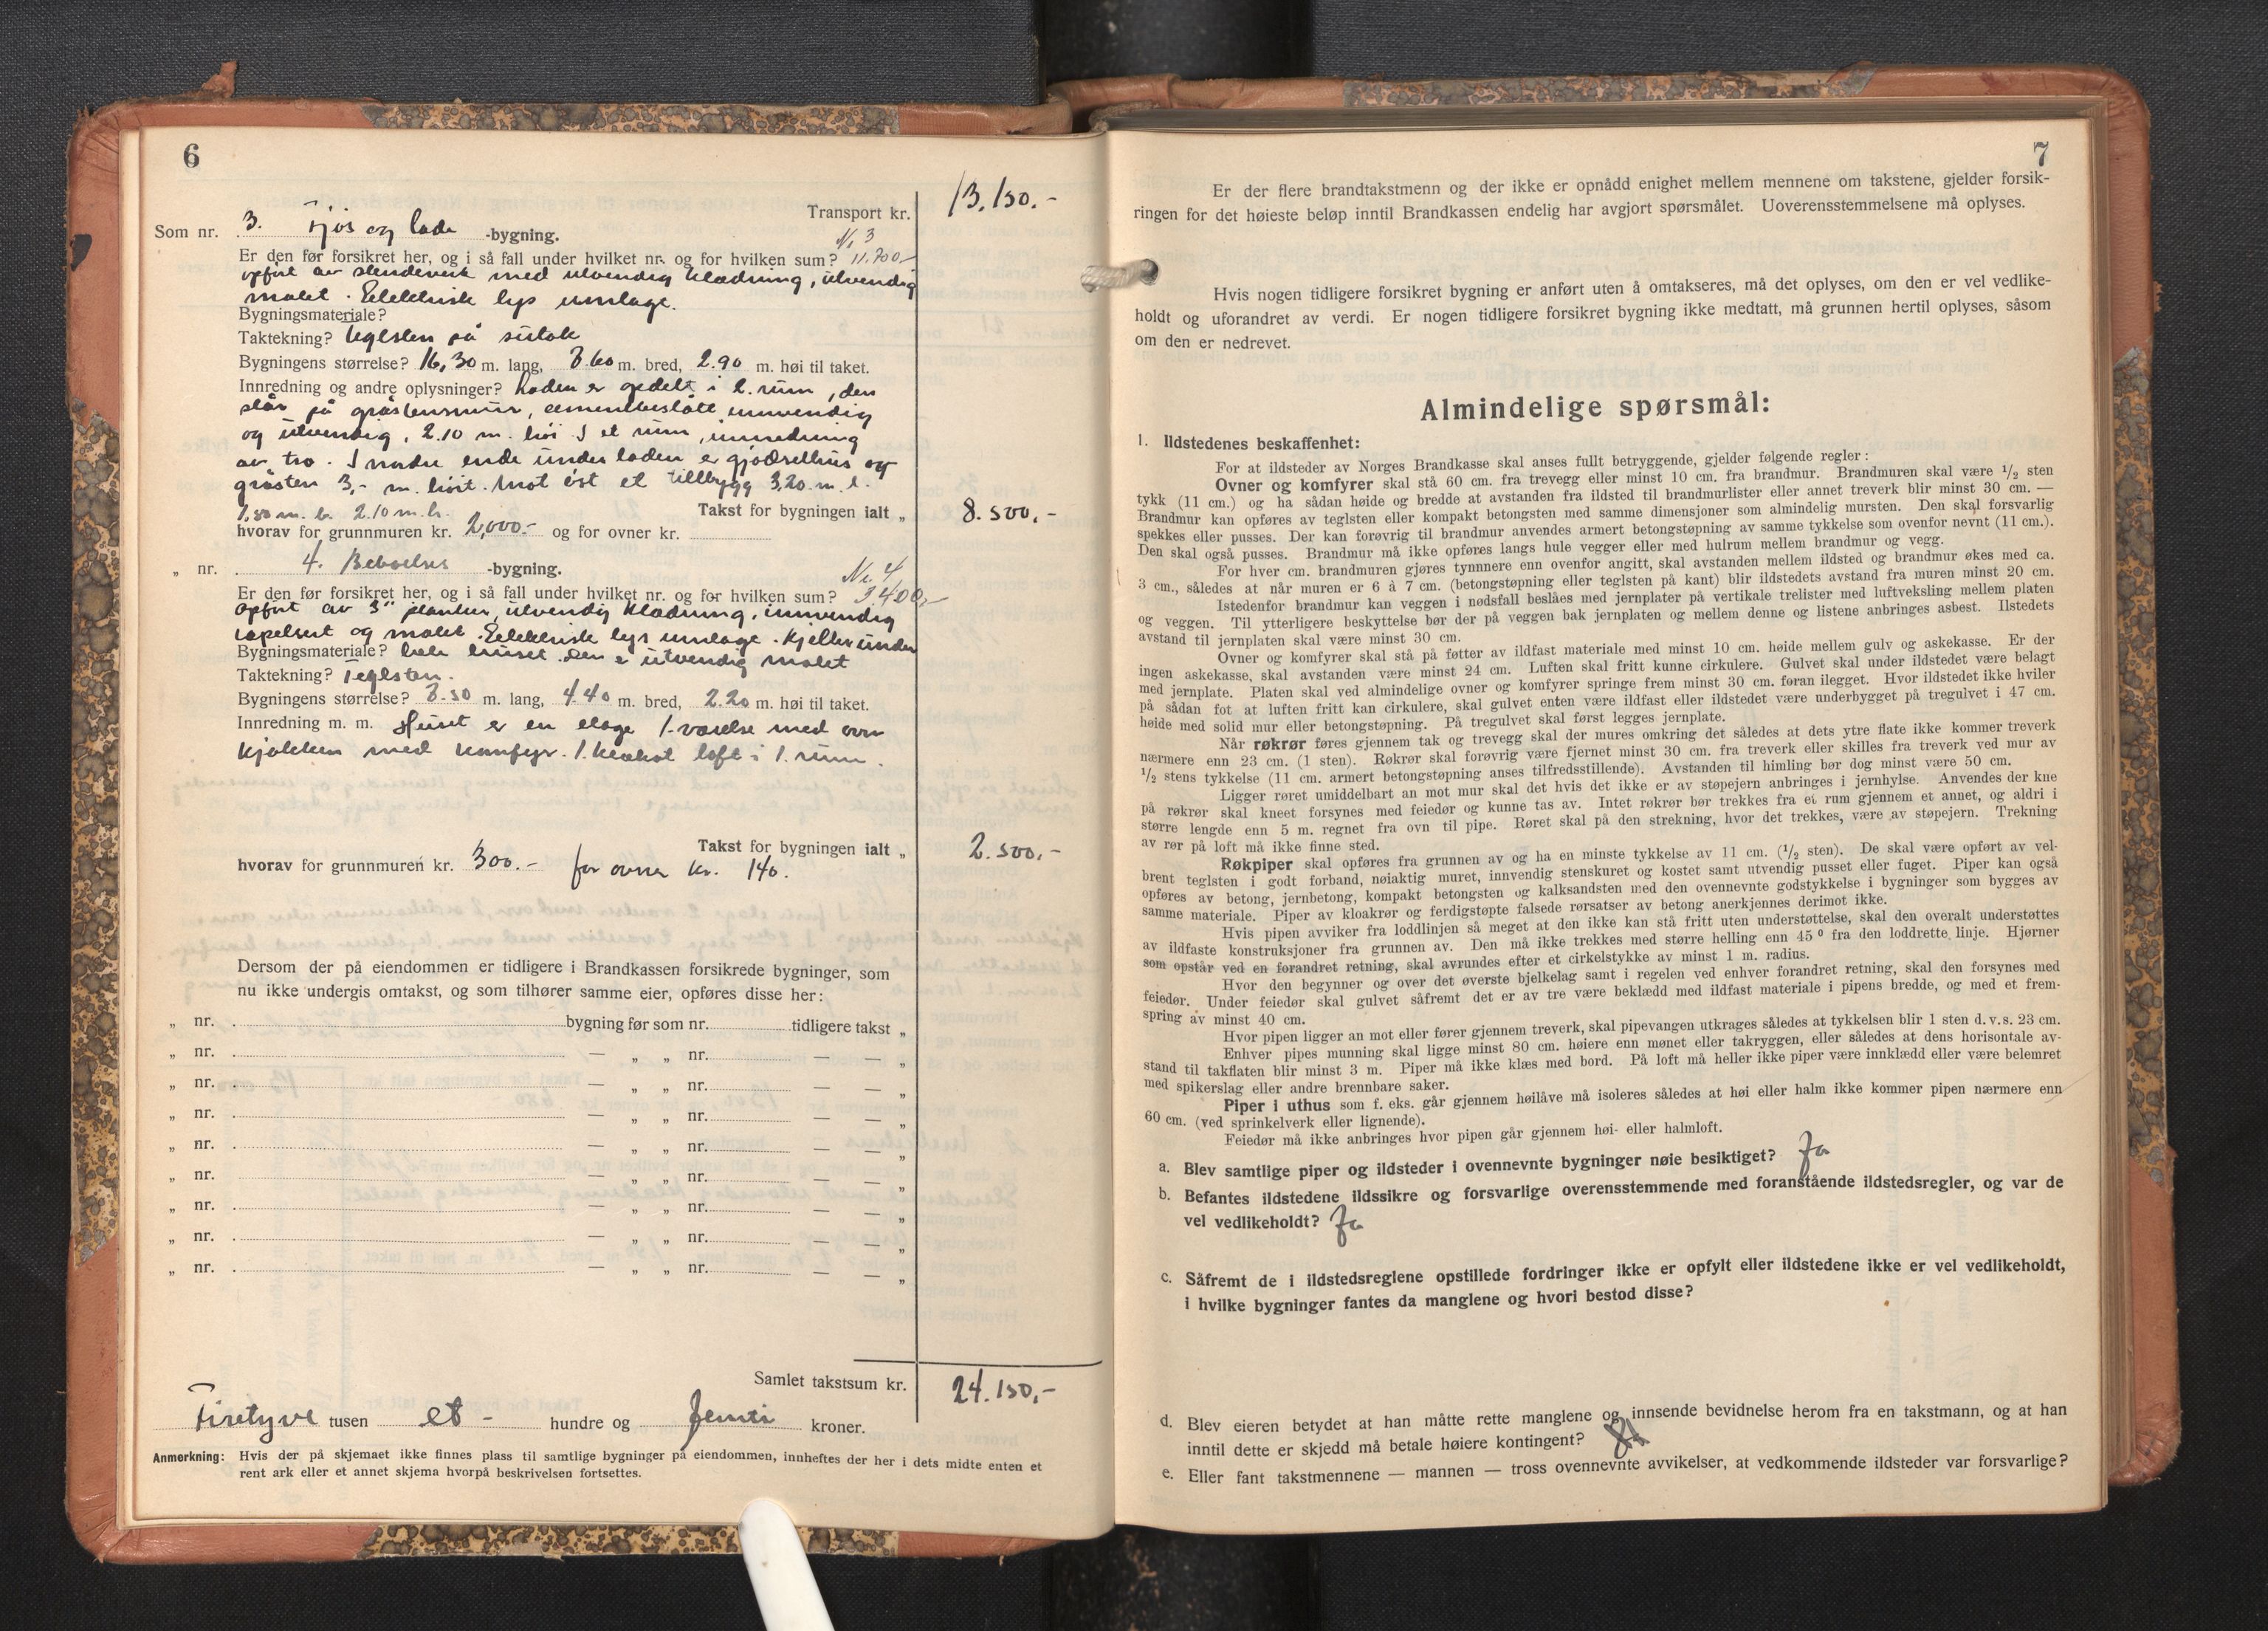 6
Transport kr. 13.150.-
Som nr. 3. Fjøs og lade -bygning.
No 3
Er den før forsikret her, og i så fall under hvilket nr. og for hvilken sum? 11.700,-
opført av stenderverk med utvendig klædning, utvendig
malet. Elektrisk lys innlage.
Bygningsmateriale?
Taktekning? teglsten på sutak
Bygningens størrelse? 16,30 m. lang, 8.60 m. bred, 2.90 m. høi til taket.
Innredning og andre oplysninger? Laden er opdelt i 2. rum, den
står på gråstensmur, cementbeslått innvendig
og utvendig, 2.10 m. høi. I et rum, innredning
av tre. I nordre ende under laden er gjødselhus og
gråsten 3,- m. høit. Mot øst et tillbygg 3,20. m. l.
1,80 m. b. 2.10 m. h. Takst for bygningen ialt „ 8.500,-
hvorav for grunnmuren kr. 2,000.- og for ovner kr.
„ nr. 4. Beboelses -bygning.
No. 4
Er den før forsikret her, og i så fall under hvilket nr. og for hvilken sum? 3400,-
Opført av 3" planker, utvendig klædning, innvendig
tapetsert og malet. Elektrisk lys innlage. Kjeller under
Bygningsmateriale? hele huset. Den er utvendig malet
Taktekning? Teglsten.
Bygningens størrelse? 8.50 m. lang, 4.40 m. bred, 2.20 m. høi til taket.
Innredning m. m. Huset er en etage 1. værelse med ovn
kjøkken med komfyr. 1. loft i 1. rum.
Takst for bygningen ialt „ 2.500,-
hvorav for grunnmuren kr. 300.- for ovner kr. 140.
Dersom der på eiendommen er tidligere i Brandkassen forsikrede bygninger, som
nu ikke undergis omtakst, og som tilhører samme eier, opføres disse her:
„ nr. bygning før som nr. tidligere takst „
„ nr. — „ „ nr. — — „
„ nr. — „ „ nr. — — „
„ nr. — „ „ nr. — — „
„ nr. — „ „ nr. — — „
„ nr. — „ „ nr. — — „
„ nr. — „ „ nr. — — „
„ nr. — „ „ nr. — — „
„ nr. — „ „ nr. — — „
Samlet takstsum kr. 24.150,-
Firetyve tusen et - hundre og femti kroner.
Anmerkning: Hvis der på skjemaet ikke finnes plass til samtlige bygninger på eiendommen, innheftes der her i dets midte enten et
rent ark eller et annet skjema hvorpå beskrivelsen fortsettes.
7
Er der flere brandtakstmenn og der ikke er opnådd enighet mellem mennene om takstene, gjelder forsik-
ringen for det høieste beløp inntil Brandkassen endelig har avgjort spørsmålet. Uoverensstemmelsene må oplyses.
Hvis nogen tidligere forsikret bygning er anført uten å omtakseres, må det oplyses, om den er vel vedlike-
holdt og uforandret av verdi. Er nogen tidligere forsikret bygning ikke medtatt, må grunnen hertil oplyses, såsom
om den er nedrevet.
Almindelige spørsmål:
1. Ildstedenes beskaffenhet:
For at ildsteder av Norges Brandkasse skal anses fullt betryggende, gjelder følgende regler:
Ovner og komfyrer skal stå 60 cm. fra trevegg eller minst 10 cm. fra brandmur. Brandmuren skal være 1/2 sten
tykk (11 cm.) og ha sådan høide og bredde at avstanden fra ildsted til brandmurlister eller annet treverk blir minst 30 cm. —
Brandmur kan opføres av teglsten eller kompakt betongsten med samme dimensjoner som almindelig mursten. Den skal forsvarlig
spekkes eller pusses. Der kan forøvrig til brandmur anvendes armert betongstøpning av samme tykkelse som ovenfor nevnt (11 cm.).
Den skal også pusses. Brandmur må ikke opføres langs hule vegger eller med hulrum mellem brandmur og vegg.
For hver cm. brandmuren gjøres tynnnere enn ovenfor angitt, skal avstanden mellem ildsted og brandmur økes med ca.
3 cm., således at når muren er 6 à 7 cm. (betongstøpning eller teglsten på kant) blir ildstedets avstand fra muren minst 20 cm.
Istedenfor brandmur kan veggen i nødsfall beslåes med jernplater på vertikale trelister med luftveksling mellem platen
og veggen. Til ytterligere beskyttelse bør der på veggen bak jernplaten og mellem denne og listene anbringes asbest. Ilstedets
avstand til jernplaten skal være minst 30 cm.
Ovner og komfyrer skal stå på føtter av ildfast materiale med minst 10 cm. høide mellem gulv og askekasse. Er der
ingen askekasse, skal avstanden være minst 24 cm. Luften skal fritt kunne cirkulere. Gulvet skal under ildstedet være belagt
med jernplate. Platen skal ved almindelige ovner og komfyrer springe frem minst 30 cm. føran ilegget. Hvor ildstedet ikke hviler
på sådan fot at luften fritt kan cirkulere, skal gulvet enten være ildfast eller ildstedet være underbygget på tregulvet i 47 cm.
høide med solid mur eller betongstøpning. På tregulvet skal først legges jernplate.
Når røkrør føres gjennem tak og trevegg skal der mures omkring det således at dets ytre flate ikke kommer treverk
nærmere enn 23 cm. (1 sten). Røkrør skal forøvrig være fjernet minst 30 cm. fra treverk eller skilles fra treverk ved mur av
1/2 stens tykkelse (11 cm. armert betongstøpning anses tilfredsstillende). Avstanden til himling bør dog minst være 50 cm.
Ligger røret umiddelbart an mot mur skal det hvis det ikke er av støpejern anbringes i jernhylse. Anvendes der kne
på røkrør skal kneet forsynes med feiedør og kunne tas av. Intet røkrør bør trekkes fra et rum gjennem et annet, og aldri i
større lengde enn 5 m. regnet fra ovn til pipe. Røret skal på den strekning, hvor det trekkes, være av støpejern. Trekning
av rør på loft må ikke finne sted.
Røkpiper skal opføres fra grunnen av og ha en minste tykkelse av 11 cm. (1/2 sten). De skal være opført av vel-
brent teglsten i godt forband, nøiaktig muret, innvendig stenskuret og kostet samt utvendig pusset eller fuget. Piper kan også
opføres av betong, jernbetong, kompakt betongsten og kalksandsten med den ovennevnte godstykkelse i bygninger som bygges av
samme materiale. Piper av kloakrør og ferdigstøpte falsede rørsatser av betong anerkjennes derimot ikke.
Hvis pipen avviker fra loddlinjen så meget at den ikke kan stå fritt uten understøttelse, skal den overalt understøttes
av ildfaste konstruksjoner fra grunnen av. Den må ikke trekkes med større helling enn 45⁰ fra den loddrette linje. Hjørner
som opstår ved en forandret retning, skal avrundes efter et cirkelstykke av minst 1 m. radius.
Hvor den begynner og over det øverste bjelkelag samt i regelen ved enhver forandret retning, skal den forsynes med
feiedør. Under feiedør skal gulvet såfremt det er av tre være beklædd med ildfast materiale i pipens bredde, og med et frem-
spring av minst 40 cm.
Hvor pipen ligger an mot eller fører gjennem treverk, skal pipevangen utkrages således at tykkelsen blir 1 sten d.v.s. 23 cm.
Enhver pipes munning skal ligge minst 80 cm. høiere enn mønet eller takryggen, eller således at dens horisontale av-
stand til takflaten blir minst 3 m. Piper må ikke klæs med bord. På loft må heller ikke piper være innklædd eller være belemret
med spikerslag eller andre brennbare saker.
Piper i uthus som f. eks. går gjennem høilåve må isoleres således at høi eller halm ikke kommer pipen nærmere enn
60 cm. (ved sprinkelverk eller lignende).
Feiedør må ikke anbringes hvor pipen går gjennem høi- eller halmloft.
a. Blev samtlige piper og ildsteder i ovennevnte bygninger nøie besiktiget? Ja
b. Befantes ildstedene ildssikre og forsvarlige overensstemmende med foranstående ildstedsregler, og var de
vel vedlikeholdt? Ja
c. Såfremt de i ildstedsreglene opstillede fordringer ikke er opfylt eller ildstedene ikke er vel vedlikeholdt,
i hvilke bygninger fantes da manglene og hvori bestod disse?
d. Blev eieren betydet at han måtte rette manglene og innsende bevidnelse herom fra en takstmann, og at han
inntil dette er skjedd må betale høiere kontingent?
e. Eller fant takstmennene — mannen — tross ovennevnte avvikelser, at vedkommende ildsteder var forsvarlige?